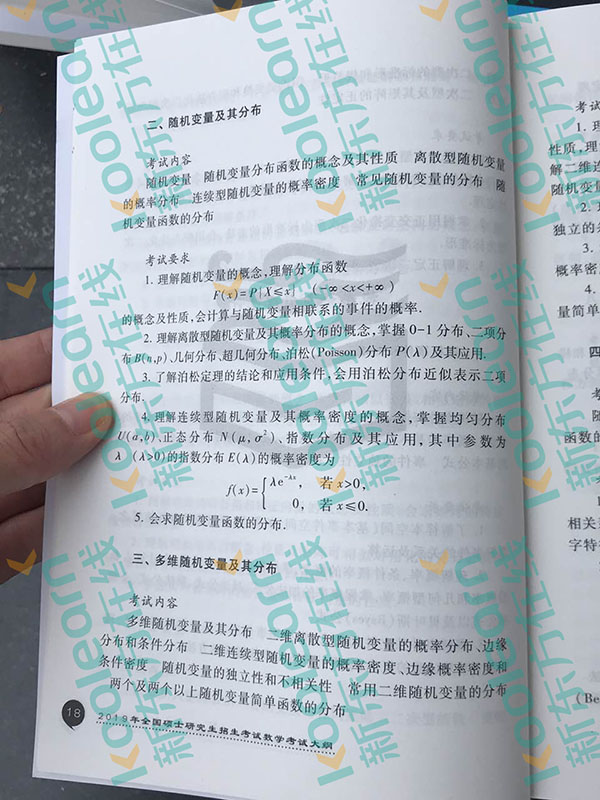 二、随机变量及其分布
考试内容
随机变量 随机变量分布函数的概念及其性质 离散型随机变量
的概率分布 连续型随机变量的概率密度 常见随机变量的分布 随
机变量函数的分布
考试要求
1. 理解随机变量的概念,理解分布函数
F(x)=P{X≤x} (-∞<x<+∞)
的概念及性质,会计算与随机变量相联系的事件的概率.
2. 理解离散型随机变量及其概率分布的概念,掌握 0-1 分布、二项分
布 B(n,p)、几何分布、超几何分布、泊松(Poisson)分布 P(λ)及其应用.
3. 了解泊松定理的结论和应用条件,会用泊松分布近似表示二项
分布.
4. 理解连续型随机变量及其概率密度的概念,掌握均匀分布
U(a,b)、正态分布 N(μ,σ²)、指数分布及其应用,其中参数为
λ (λ>0)的指数分布 E(λ)的概率密度为
f(x)={λe^{-λx}, 若 x>0,
0, 若 x≤0.
5. 会求随机变量函数的分布.
三、多维随机变量及其分布
考试内容
多维随机变量及其分布 二维离散型随机变量的概率分布、边缘
分布和条件分布 二维连续型随机变量的概率密度、边缘概率密度和
条件密度 随机变量的独立性和不相关性 常用二维随机变量的分布
两个及两个以上随机变量简单函数的分布
18 2019年全国硕士研究生招生考试数学考试大纲
考试
1. 理
性质,理
解二维连
随机变量
2.
独立的条
3.
概率密度
4.
量简单
四
考
随
函数的
考
相关
字特
(Be
koolearn
新东方在线